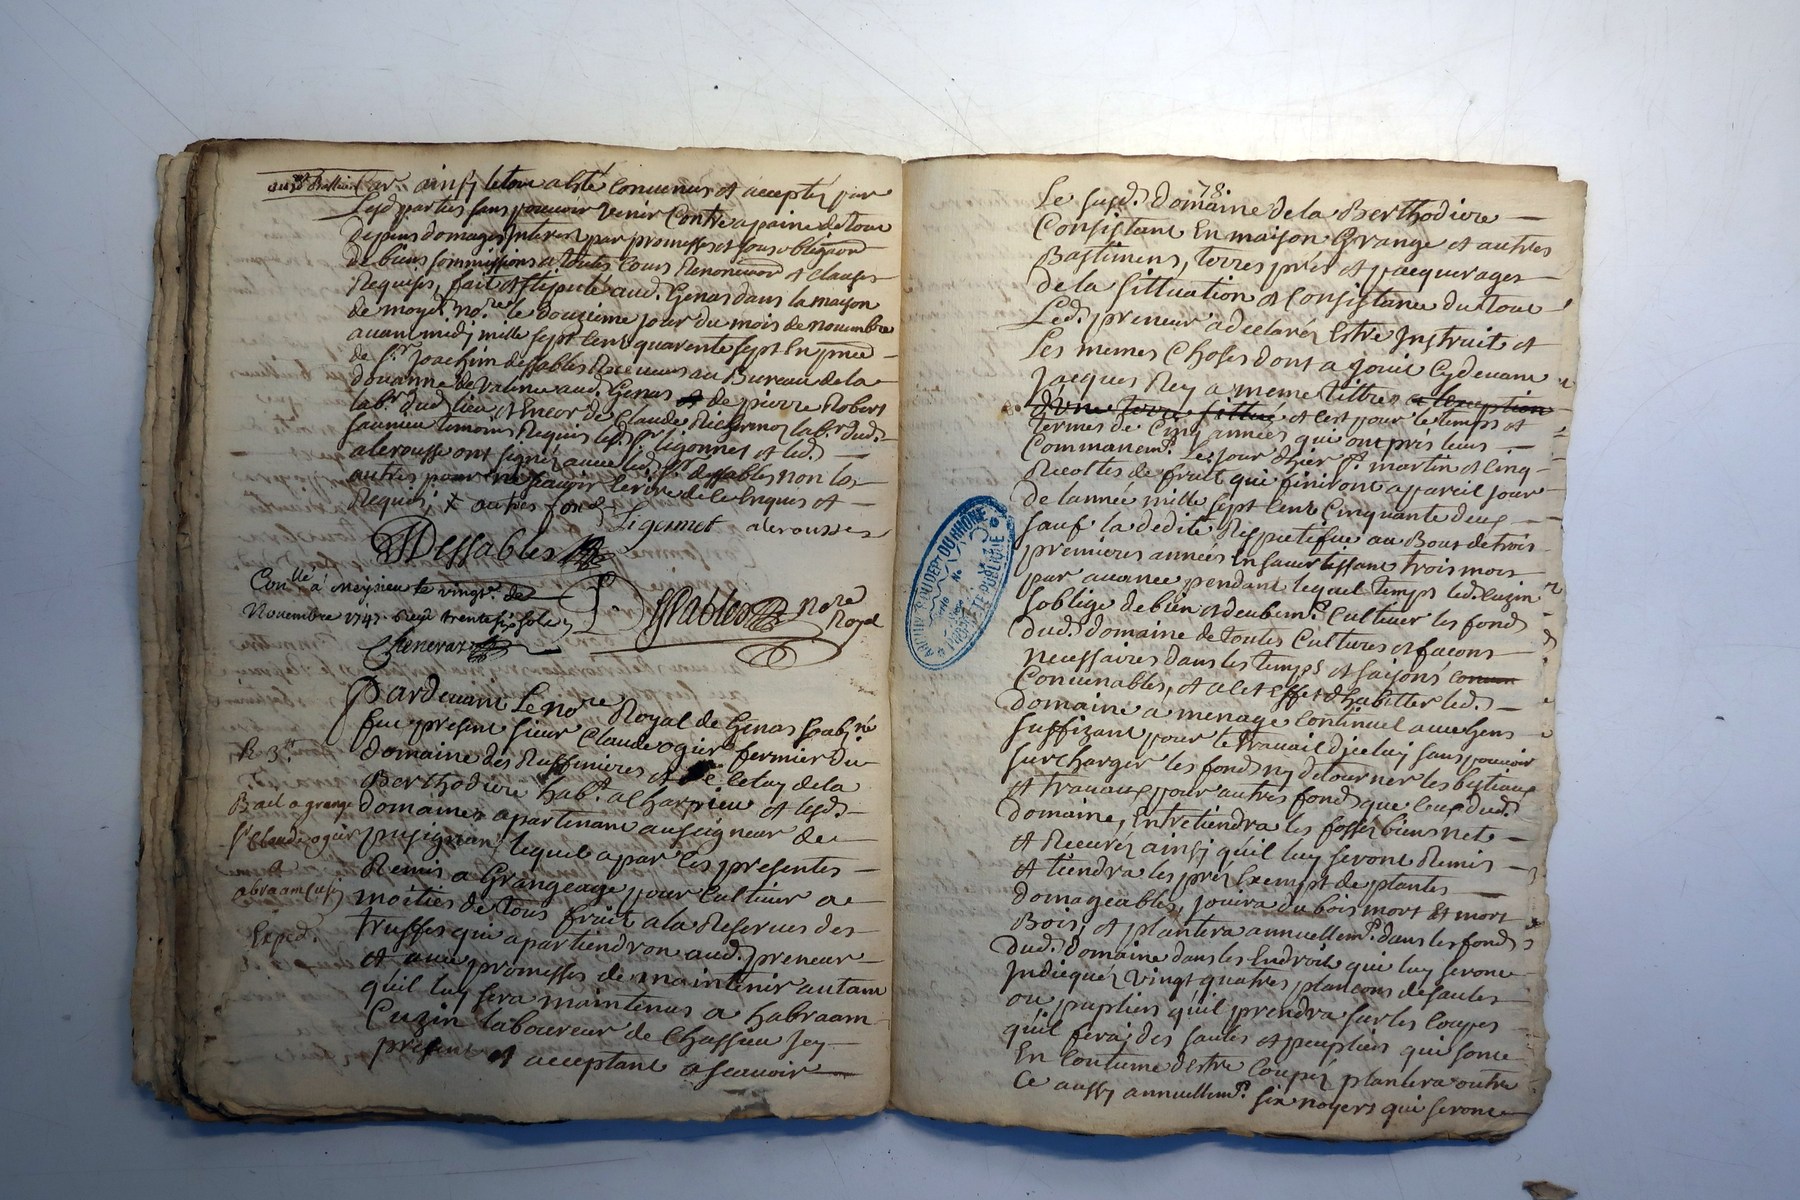 Car ainsy le tout a esté convenus et acceptés par
Lesd parties sans pouvoir venir Contre a paine de tous
depens domages Interest par promesses et sous obligaon
de biens sommissions a toutes Cours Renonciaon et clauses
Requises, fait et stipulé aud. Genas dans la mayson
de moyd. nore. le douzieme jour du mois de novembre
avant midy mille sept cent quarente sept En pnce
de sr. Joachim dessables Receveur au Bureau de la
douanne de valence aud. Genas et de pierre Robert
labr. dud lieu et Encor de Claude labr. dud.
temoins Requis led. sr. ligonnet et led.
alerousse ont signés avec led. sr. dessables non les
autres pour ne scavoir Ecrire de ce Enquis et
Requis x autres fonds
Ligonnet alerousse
JDessables
Conllé a Meysieu le vingt. de
Novembre 1747. Reçu trente six sols
Dessables nore
Royal
Pardevant Le nore Royal de Genas soubsné
fut present sieur Claude ogier fermier du
k 3.et
domaine des Ruffinieres et de celuy de la
Berthodiere habt. a Charpieu et lesd.
Bail a grange
domaines apartenant au seigneur de
sr Claude ogier
pusignan, lequel a par les presentes
a
Remis a Grangeage pour Cultiver a
abraam Cusin
moities de tous fruit a la Reserves des
Exped.
truffes qui apartiendron aud. preneur
et avec promesses de maintenir autant
qu'il luy sera maintenus a habraam
Cuzin laboureur de Chassieu Jcy
present et acceptant a scavoir
78.
Le susd. domaine de la Berthodiere
Consistant En maison Grange et autres
Bastimens, terres prés et pacquerages
de la sittuation et Consistance du tout
Led. preneur a declarés Estre Instruit et
Les memes Choses dont a jouit Cydevant
Jacques Rey a meme tittres a lexception
d'une terre sittué et c'est pour le temps et
termes de Cinq années qui ont pris leurs
Commancemt. Le jour dhier st. martin et Cinq
Recoltes de fruit qui finiront a pareil jour
de lannée mille sept cent Cinquante deux
sauf la dedite Respective au Bout de trois
premieres années En savertissant trois mois
par avance pendant lequel temps led. Cuzin
soblige de bien et deubemt. Cultiver les fonds
dud. domaine de toutes Cultures et facons
necessaires dans les temps et saisons
Convenables, et a cet Effet dhabitter led.
domaine a menage Continuel avec Gens
suffizant pour le travail diceluy sans pouvoir
surcharger les fonds ny detourner les bestiaux
et travaux pour autres fonds que ceux dud.
domaine, Entretiendra les fossés biens net
et Recurés ainsy quil luy seront Remis
et tiendra les prés Exempt de plantes
domageables, jouira du bois mort Et mort
Bois, et plantera annuellemt. dans les fonds
dud. domaine dans les Endroits qui luy seront
Indicqués vingt quatres plancons de saules
ou pupliers quil prendra sur les Coupes
qu'il fera, des saules et peupliers qui sont
En Coutume destre Coupés plantera outre
Ce aussy annuellemt. six noyers qui seront